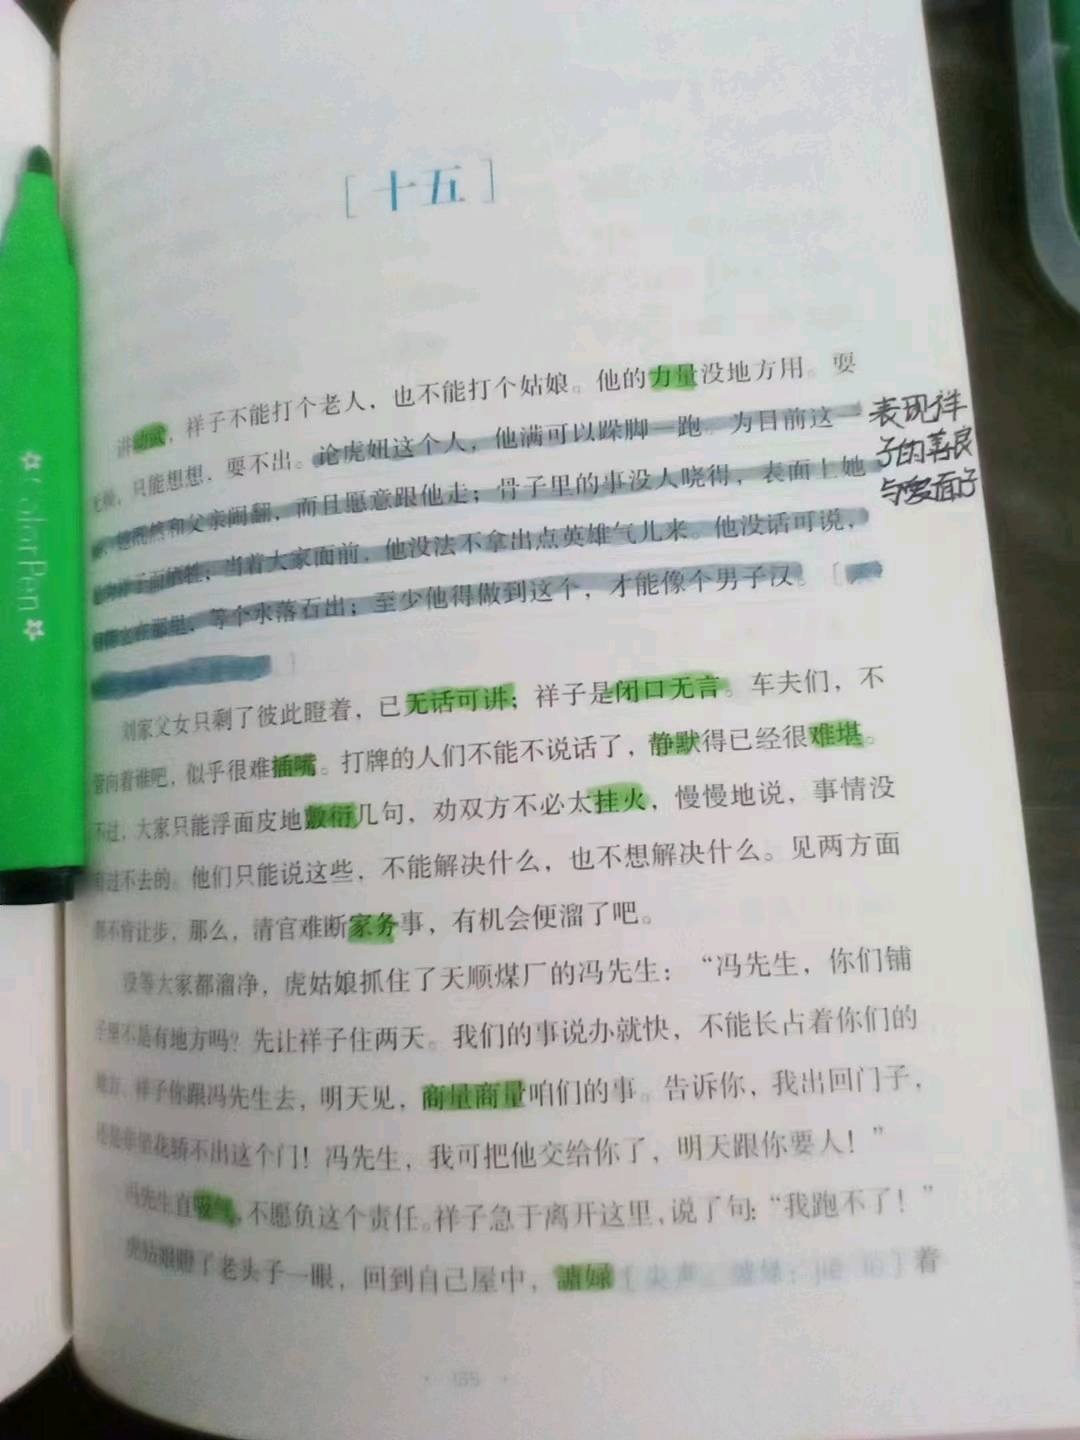 [十五]
讲动武，祥子不能打个老人，也不能打个姑娘。他的力量没地方用。耍
无赖，只能想想，耍不出。论虎妞这个人，他满可以跺脚一跑。为目前这一
她既然和父亲闹翻，而且愿意跟他走；骨子里的事没人晓得，表面上她
祥子而牺牲；当着大家面前，他没法不拿出点英雄气儿来。他没话可说，
在那里，等个水落石出；至少他得做到这个，才能像个男子汉。[
]
表现祥
子的善良
与爱面子
刘家父女只剩了彼此瞪着，已无话可讲；祥子是闭口无言。车夫们，不
管向着谁吧，似乎很难插嘴。打牌的人们不能不说话了，静默得已经很难堪。
不过，大家只能浮面皮地敷衍几句，劝双方不必太挂火，慢慢地说，事情没
有过不去的。他们只能说这些，不能解决什么，也不想解决什么。见两方面
都不肯让步，那么，清官难断家务事，有机会便溜了吧。
没等大家都溜净，虎姑娘抓住了天顺煤厂的冯先生：“冯先生，你们铺
子里不是有地方吗？先让祥子住两天。我们的事说办就快，不能长占着你们的
地方。祥子你跟冯先生去，明天见，商量商量咱们的事。告诉你，我出回门子，
还是非坐花轿不出这个门！冯先生，我可把他交给你了，明天跟你要人！”
冯先生直吸气，不愿负这个责任。祥子急于离开这里，说了句：“我跑不了！”
虎姑娘瞪了老头子一眼，回到自己屋中，㖩[]着
ColorPen